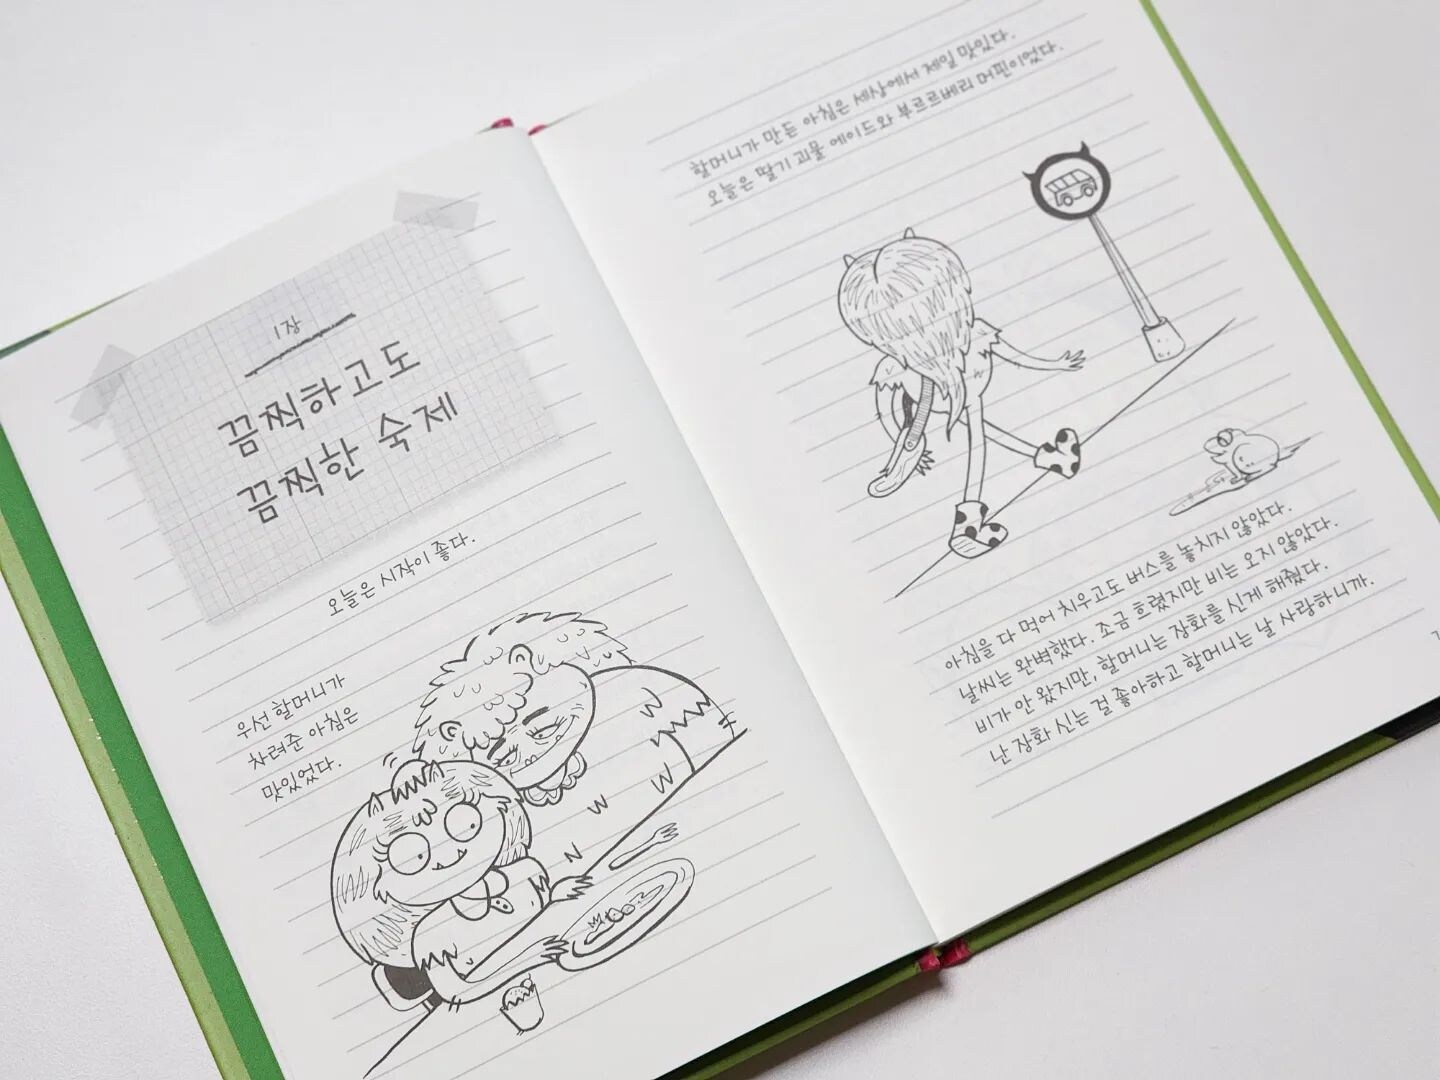 1장
끔찍하고도
끔찍한 숙제
오늘은 시작이 좋다.
우선 할머니가
차려준 아침은
맛있었다.
할머니가 만든 아침은 세상에서 제일 맛있다.
오늘은 딸기 괴물 에이드와 부르르베리 머핀이었다.
아침을 다 먹어 치우고도 버스를 놓치지 않았다.
날씨는 완벽했다. 조금 흐렸지만 비는 오지 않았다.
비가 안 왔지만, 할머니는 장화를 신게 해줬다.
난 장화 신는 걸 좋아하고 할머니는 날 사랑하니까.